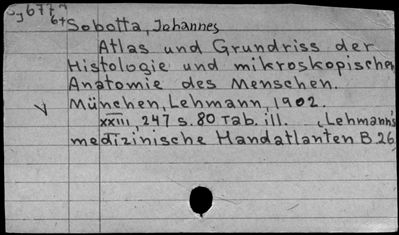 Sobotta, Johannes
Atlas und Grundriss der
Histologie und mikroskopischen
Anatomie des Menschen.
München, Lehmann, 1902.
XXIII, 247 S. 80 Tab. ill. (Lehmann's
medizinische Handatlanten B. 26